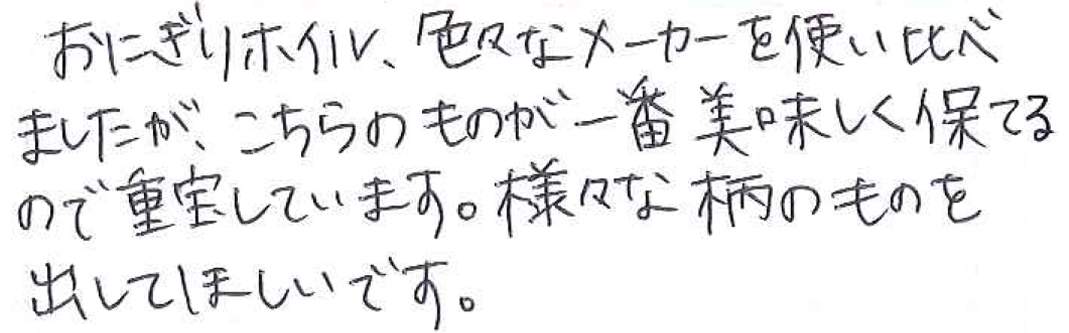 おにぎりホイル、色々なメーカーを使い比べ
ましたが、こちらのものが一番美味しく保てる
ので重宝しています。様々な柄のものを
出してほしいです。